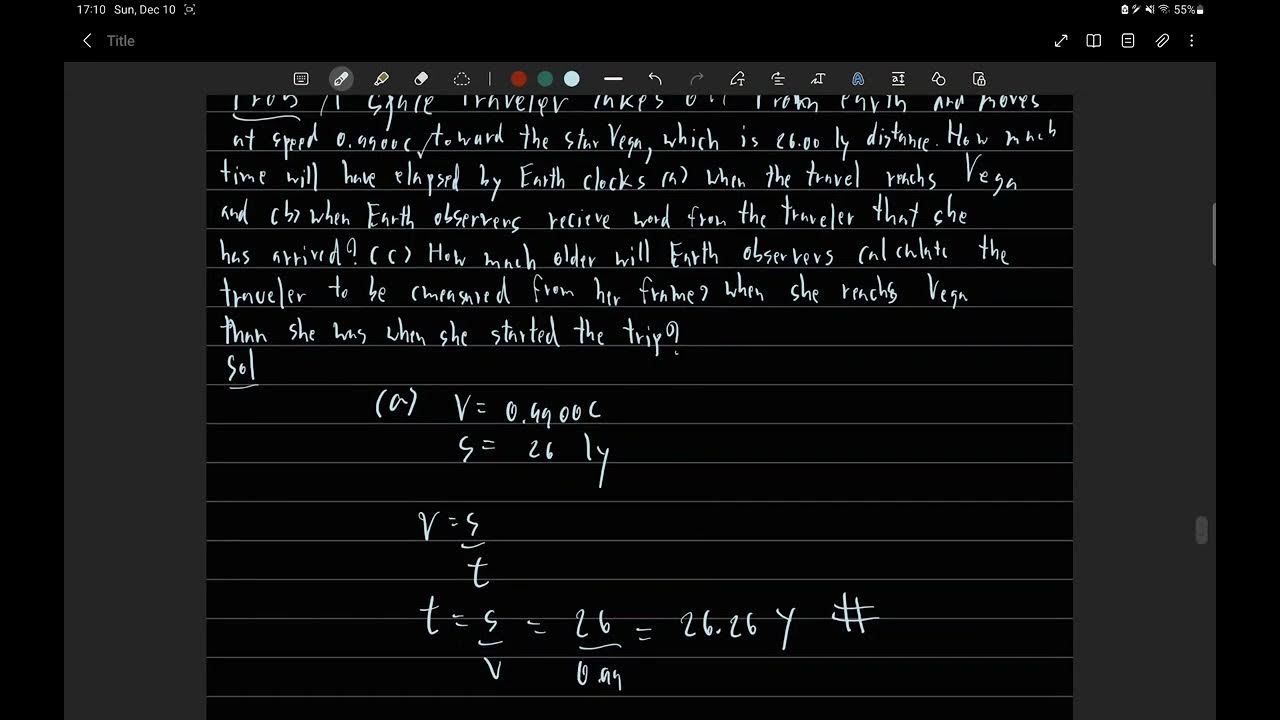 17:10 Sun, Dec 10
55%
Title
Prob A space traveler takes off from earth and moves
at speed 0.9900c toward the star Vega, which is 26.00 ly distance. How much
time will have elapsed by Earth clocks (a) when the travel reachs Vega
and (b) when Earth observers recieve word from the traveler that she
has arrived? (c) How much older will Earth observers calculate the
traveler to be (measured from her frame) when she reachs Vega
than she was when she started the trip?
Sol
(a) V = 0.9900c
s = 26 ly
V = s
t
t = s = 26 = 26.26 y #
V 0.99